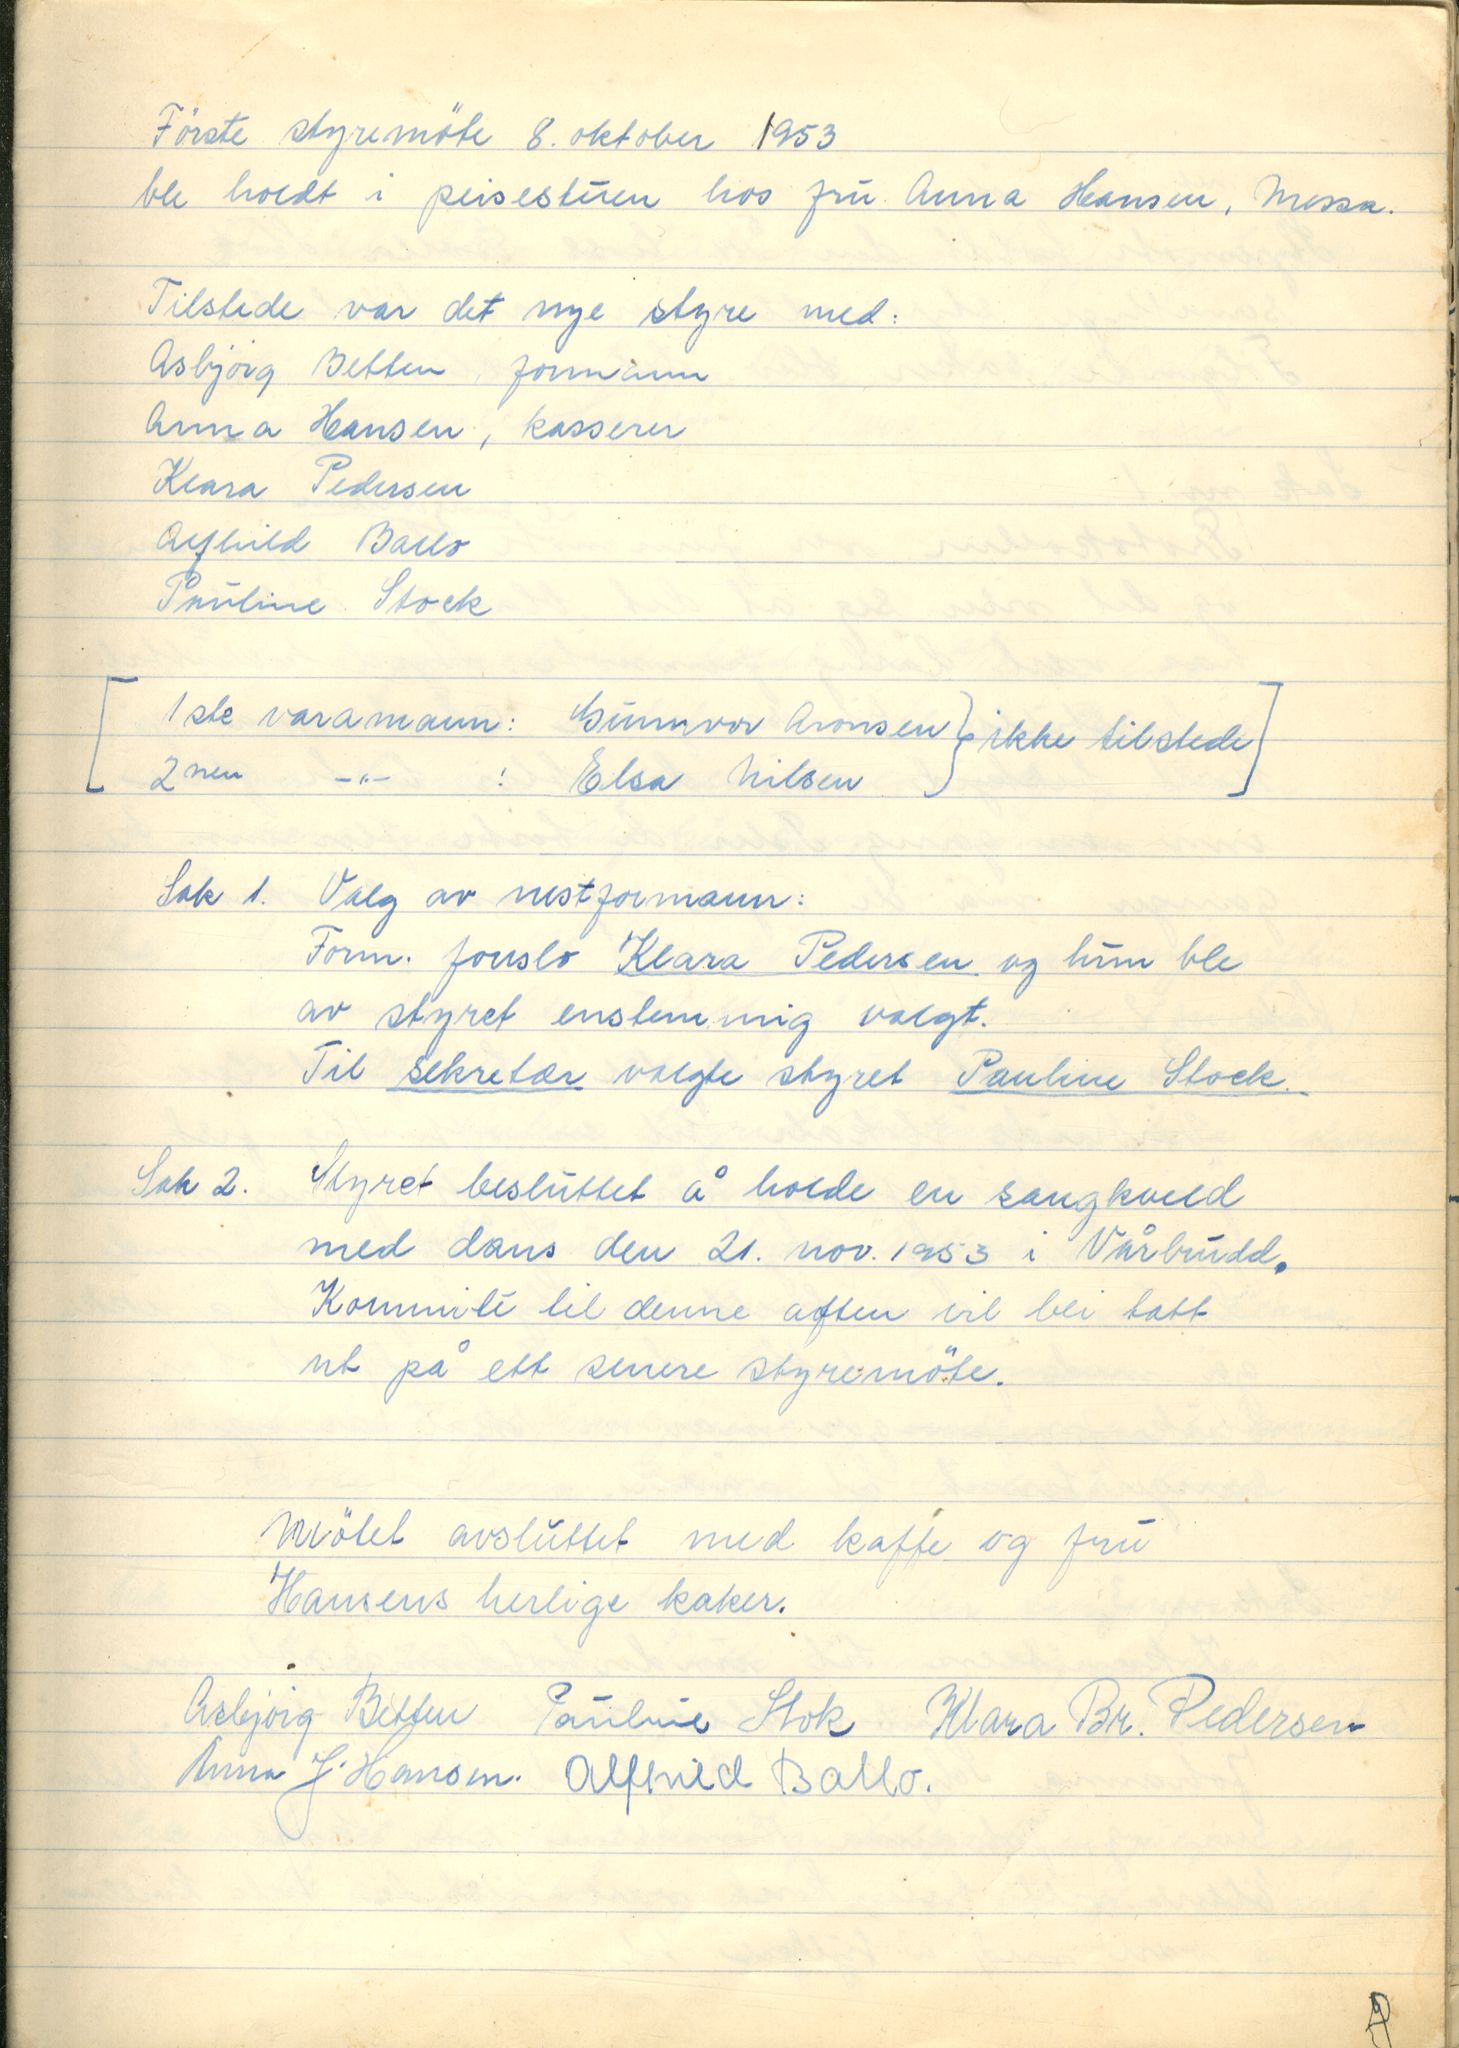 Förste styremöte 8. oktober 1953
ble holdt i peisestuen hos fru Anna Hansen, Messa.
Tilstede var det nye styre med:
Asbjörg Betten, formann
Anna Hansen, kasserer
Klara Pedersen
Alfhild Ballo
Pauline Stock
[1ste varamann: Gunnvor Aronsen } ikke tilstede]
2nen -"- : Elsa Nilsen
Sak 1. Valg av nestformann:
Form. forslo Klara Pedersen og hun ble
av styret enstemmig valgt.
Til sekretær valgte styret Pauline Stock.
Sak 2. Styret besluttet å holde en sangkveld
med dans den 21. nov. 1953 i Vårbrudd.
Kommité til denne aften vil bli tatt
ut på ett senere styremöte.
Mötet avsluttet med kaffe og fru
Hansens herlige kaker.
Asbjörg Betten Pauline Stok Klara Br. Pedersen
Anna J. Hansen. Alfhild Ballo.